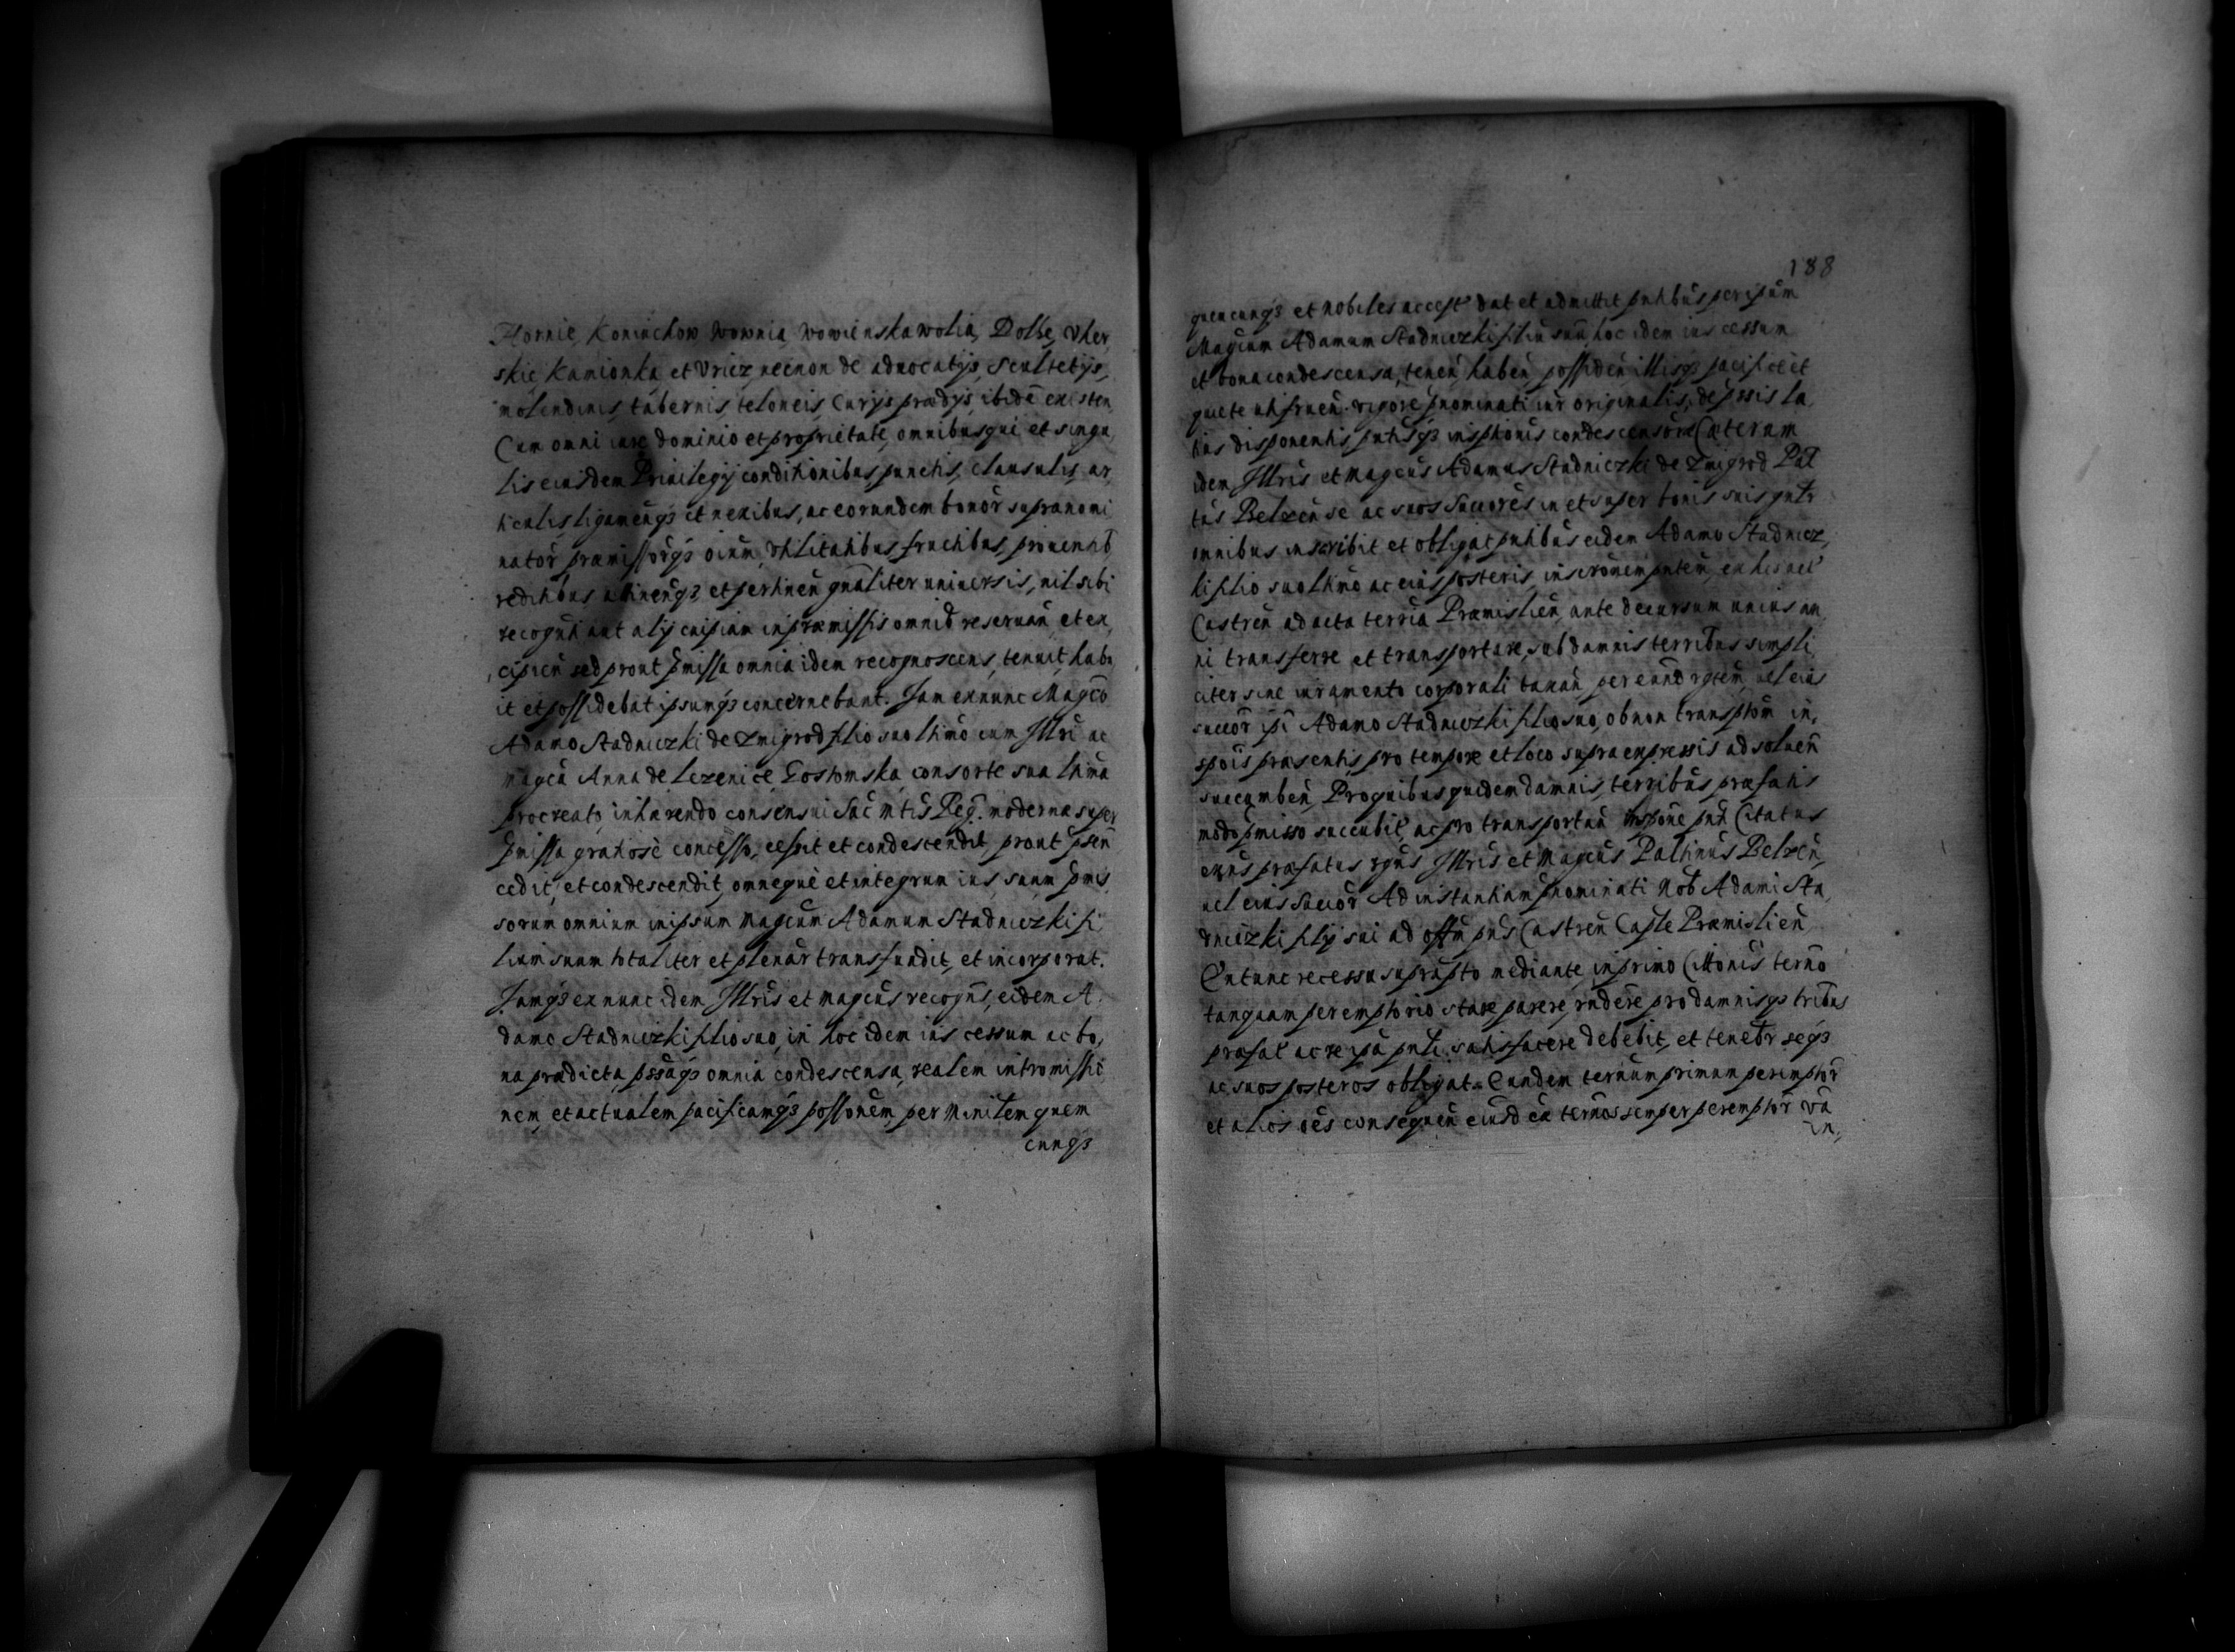 Hornie, Koninchow Wownia, Wowienska wolia, Dolhe, Vher,
skie Kamionka et Vricz, necnon de aduocatijs, Scultetijs,
molendinis, tabernis, teloneis, Curijs prædijs, ibidē existen,
Cum omni iure dominio et proprietate, omnibusqui et singu,
lis eiusdem Priuilegij conditionibus, punctis, clausulis, ar,
ticulis, ligamenq3 et nexibus, ac eorundem bonor̃ supranomi
nator̃ præmissorq3 oium, vtilitatibus fructibus, prouentib
reditibus attinenq3, et pertineñ gnaliter uniuersis, nil sibi
recogñti aut alij cuipiam in præmissis omnib reseruañ, et ex,
cipieñ sed prout p̃missa omnia idem recognoscens, tenuit, habu
it et possidebat ipsumq3 concernebant. Jam exnunc Magco
Adamo Stadniczki de Zmigrod filio suo lt̃imo cum Jllri ac
magca Anna de Lezenice Gostomska, consorte sua lt̃ima
procreato, inhærendo consensui Sac̃ Mtis Reg̃. moderna super
p̃missa gratiose concesso, cessit et condescendit, prout p̃señ
cedit, et condescendit, omneque et integrum ius, suum p̃mis
sorum omnium in ipsum Magcum Adamum Stadniczki fi
lium suum totaliter et plenar transfundit, et incorporat.
Jamq3 exnunc idem Jllris et magcus recogñs, eidem A
damo Stadniczki filio suo, in hoc idem ius cessum ac bo,
na prædicta pssaq3 omnia condescensa, realem intromissio
nem, et actualem pacificamq3 possonem, per Ministem quem
cunq3
188
quencunq3 et nobiles accept dat et admittit pntibus per ipsum
Magcum Adamum Stadniczki filiu suu, hoc idem ius cessum
et bona condescensa, teneñ, habeñ possideñ illisq3 pacifice et
quete utifrueñ vigore pnominati iur originalis, de pssis la,
tius disponentis, pntisq3 insptionis condescensoriæ Cæterum
idem Jllris et Magcus Adamus Stadniczki de Zmigrod Pal
tus Belzense ac suos Succores in et super bonis suis gntr
omnibus inscribit et obligat pntibus eidem Adamo Stadnicz,
ki filio suo lt̃imo ac eius posteris, inscronem pntem, ex his act
Castreñ ad acta terria Præmislień, ante decursum unius an,
ni transferre et transportare, sub damnis terribus simpli
citer sine iuramento corporali taxañ per eund rgtem, uel eius
succor̃ ipi Adamo Stadniczki filio suo, ob non transptom in,
spois præsentis, pro tempore et loco supra expressis ad solueñ
succumbeñ, Pro quibus quidem damnis, terribus præfatis
modo p̃misso succubit ac pro transportañ inspone pnti Citatus
exns præfatus rgns Jllris et Magcus Paltinus Belzeñ,
uel eius Succor Ad instantiam pnominati Nob Adami Sta,
dniczki filij sui ad offm pns Castreñ Capte Præmislień,
Extunc recessu suprapto mediante, in primo Cittonis terno
tanquam peremptorio stare parere, rndere pro damnisq3 tribus
præfat ac re ipa pnti satisfacere debebit, et tenetr seq3
ac suos posteros obligat. Eundem ternum primum peremptor
et alios oes consequeñ eiusd ca ternos semper peremptor va
in,